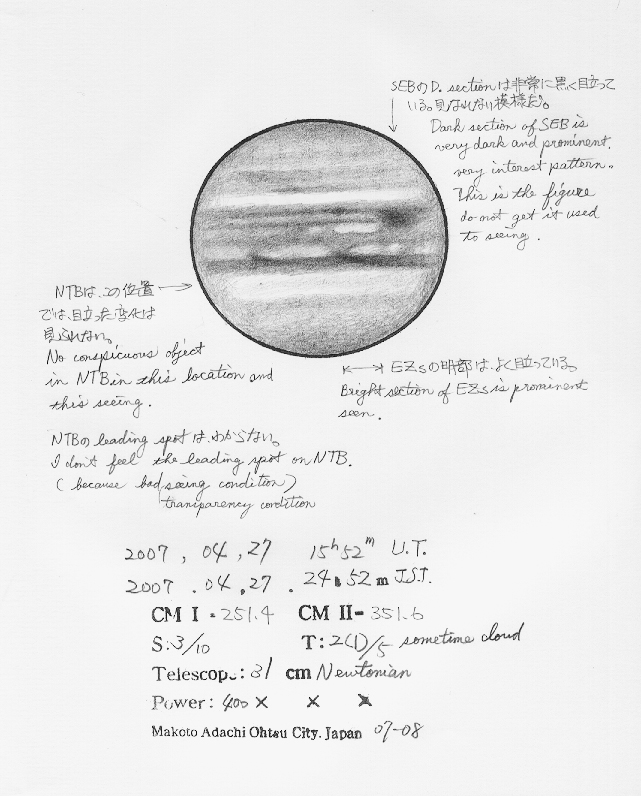 SEBのD. sectionは非常に黒く目立って
いる。見なれない模様だ。
Dark section of SEB is
very dark and prominent.
very interest pattern.
This is the figure
do not get it used
to seeing.
NTBは、この位置
では、目立った変化は
見られない。
No conspicuous object
in NTB in this location and
this seeing.
EZsの明部は、よく目立っている。
Bright section of EZs is prominent
seen.
NTBのleading spotは、わからない。
I don't feel the leading spot on NTB.
( because bad seeing condition )
tranparency condition
2007 , 04 , 27 15h 52m U.T.
2007 . 04 . 27 . 24h 52m J.S.T.
CM I = 251.4 CM II= 351.6
S: 3/10 T: 2(1)/5 sometime cloud
Telescope: 31 cm Newtonian
Power: 400 × × ×
Makoto Adachi Ohtsu City. Japan 07-08